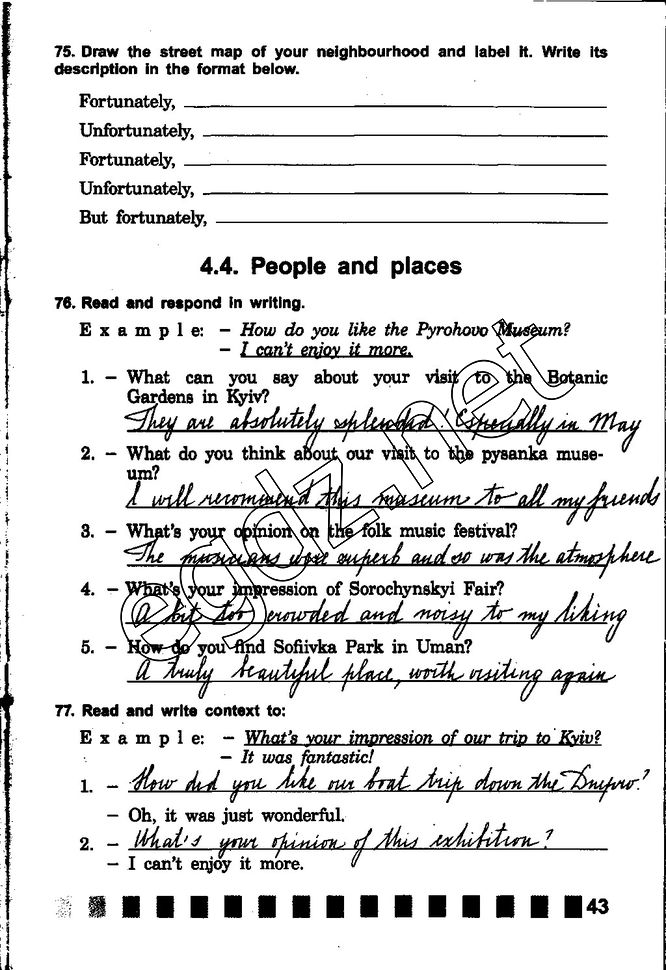 75. Draw the street map of your neighbourhood and label it. Write its
description in the format below.
Fortunately,
Unfortunately,
Fortunately,
Unfortunately,
But fortunately,
4.4. People and places
76. Read and respond in writing.
Example: – How do you like the Pyrohovo Museum?
– I can't enjoy it more.
1. – What can you say about your visit to the Botanic
Gardens in Kyiv?
They are absolutely splended! Especially in May
2. – What do you think about our visit to the pysanka muse-
um?
I will recommend this museum to all my friends
3. – What's your opinion on the folk music festival?
The musicians were superb and so was the atmosphere
4. – What's your impression of Sorochynskyi Fair?
A bit too crowded and noisy to my liking
5. – How do you find Sofiivka Park in Uman?
A truly beautiful place, worth visiting again
77. Read and write context to:
Example: – What's your impression of our trip to Kyiv?
– It was fantastic!
1. – How did you like our boat trip down the Dnipro?
– Oh, it was just wonderful.
2. – What's your opinion of this exhibition?
– I can't enjoy it more.
43
egdz.net